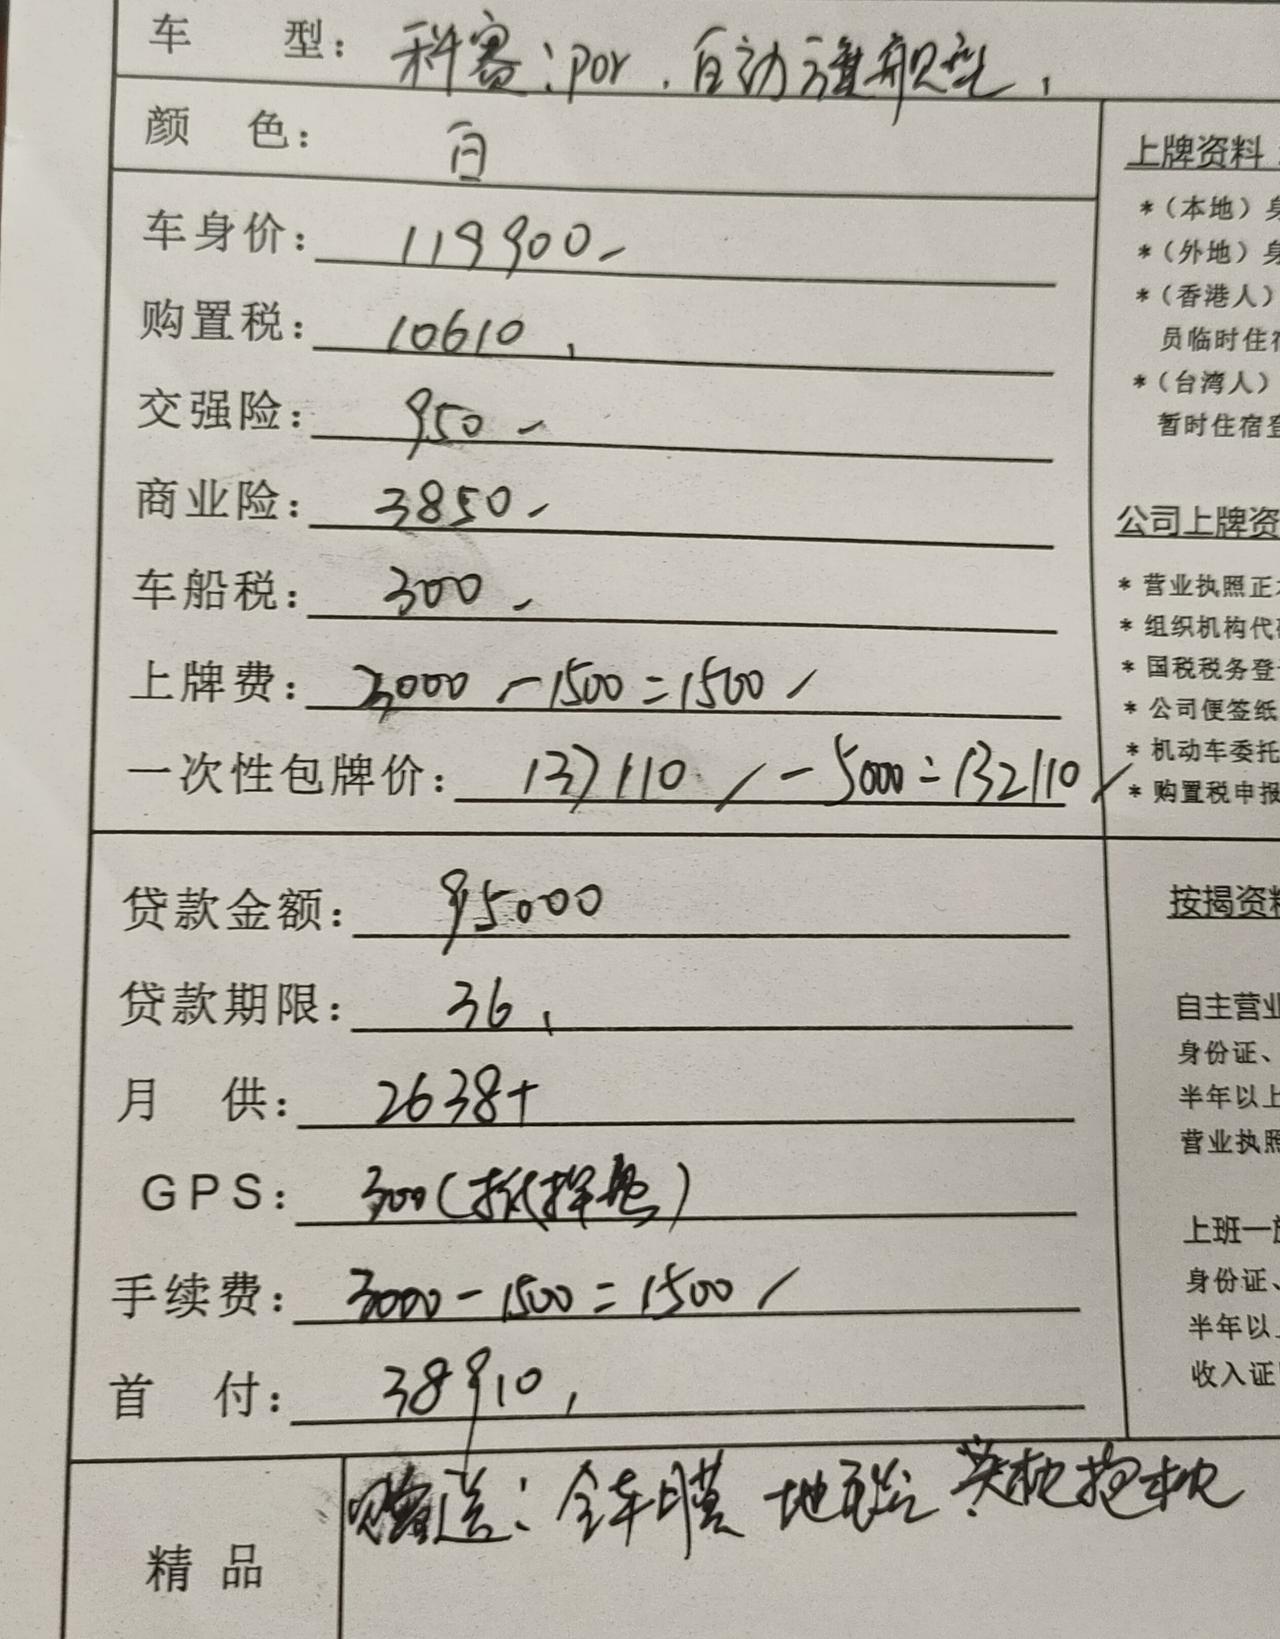 车 型: 科赛: por . 自动旗舰型,
颜 色: 白
车身价: 119900-
购置税: 10610,
交强险: 950-
商业险: 3850-
车船税: 300-
上牌费: 3000-1500=1500/
一次性包牌价: 137110/-5000=132110/
贷款金额: 95000
贷款期限: 36,
月 供: 2638+
GPS: 300(抵押费)
手续费: 3000-1500=1500/
首 付: 38910,
精 品
赠送: 全车膜 地毯 头枕抱枕
上牌资料
*(本地)身
*(外地)身
*(香港人)
员临时住宿
*(台湾人)
暂时住宿登
公司上牌资
* 营业执照正本
* 组织机构代码
* 国税税务登
* 公司便签纸
* 机动车委托
* 购置税申报
按揭资料
自主营业
身份证、
半年以上
营业执照
上班一族
身份证、
半年以上
收入证